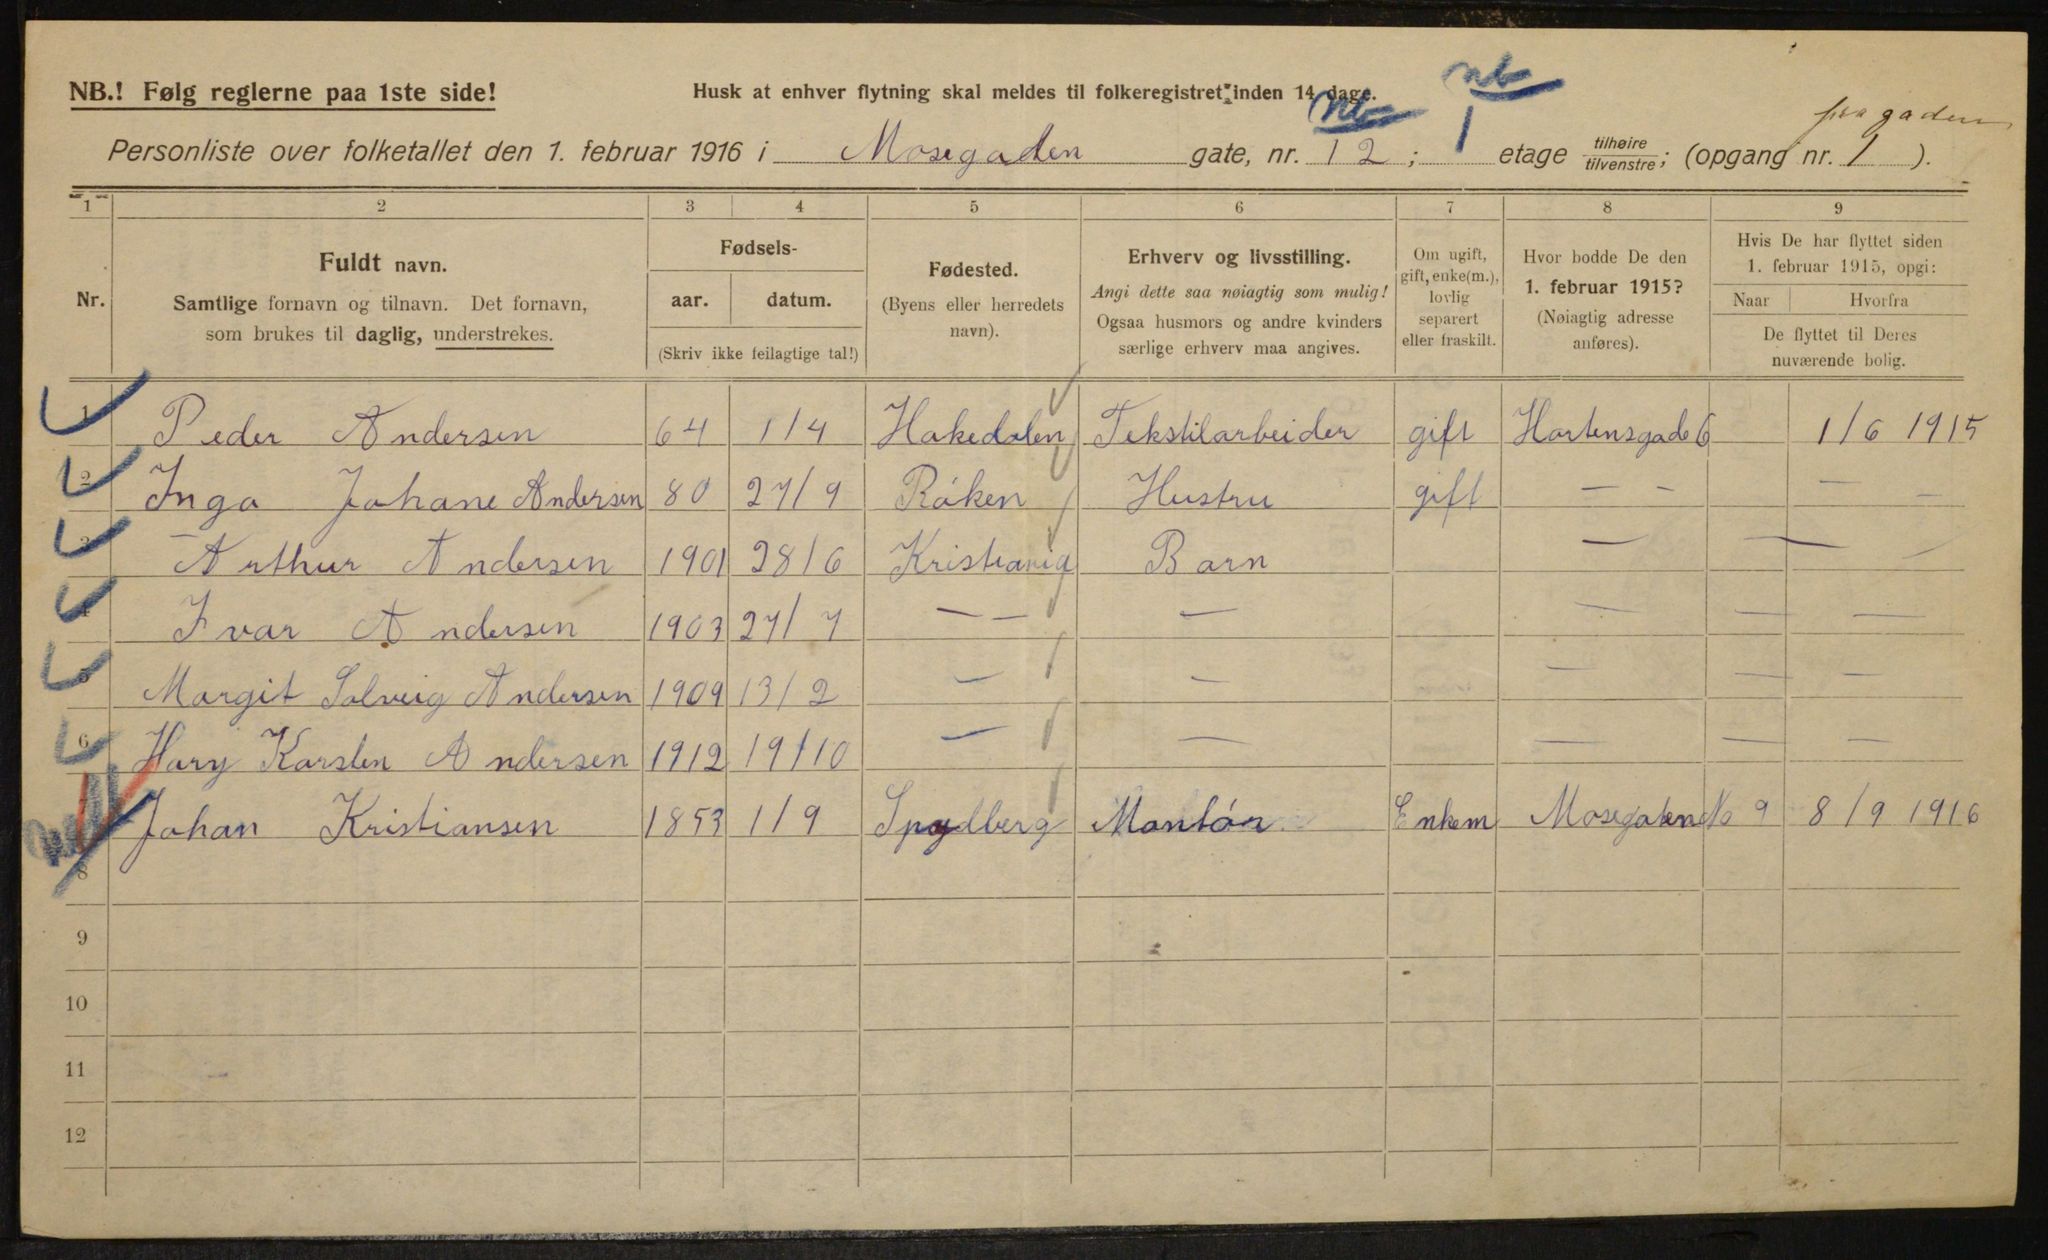 NB.! Følg reglerne paa 1ste side!
Husk at enhver flytning skal meldes til folkeregistret inden 14 dage.
nb
nb
fra gaden
Personliste over folketallet den 1. februar 1916 i Mosegaden gate, nr. 12; 1 etage tilhøire/tilvenstre; (opgang nr. 1 ).
1 2 3 4 5 6 7 8 9
Nr.
Fuldt navn.
Samtlige fornavn og tilnavn. Det fornavn,
som brukes til daglig, understrekes.
Fødsels-
aar. datum.
(Skriv ikke feilagtige tal!)
Fødested.
(Byens eller herredets
navn).
Erhverv og livsstilling.
Angi dette saa nøiagtig som mulig!
Ogsaa husmors og andre kvinders
særlige erhverv maa angives.
Om ugift,
gift, enke(m.),
lovlig
separert
eller fraskilt.
Hvor bodde De den
1. februar 1915?
(Nøiagtig adresse
anføres).
Hvis De har flyttet siden
1. februar 1915, opgi:
Naar Hvorfra
De flyttet til Deres
nuværende bolig.
1 Peder Andersen 64 1/4 Hakedalen Tekstilarbeider gift Hortensgade 6 1/6 1915
2 Inga Johane Andersen 80 27/9 Røken Hustru gift — — — —
3 Arthur Andersen 1901 28/6 Kristiania Barn — — —
4 Ivar Andersen 1903 27/7 — — — — — —
5 Margit Solveig Andersen 1909 13/2 — — — — —
6 Hary Karsten Andersen 1912 19/10 — — — — —
Johan Kristiansen 1853 1/9 Spydberg Montør Enkem Mosegaten No 9 8/9 1916
8
9
10
11
12